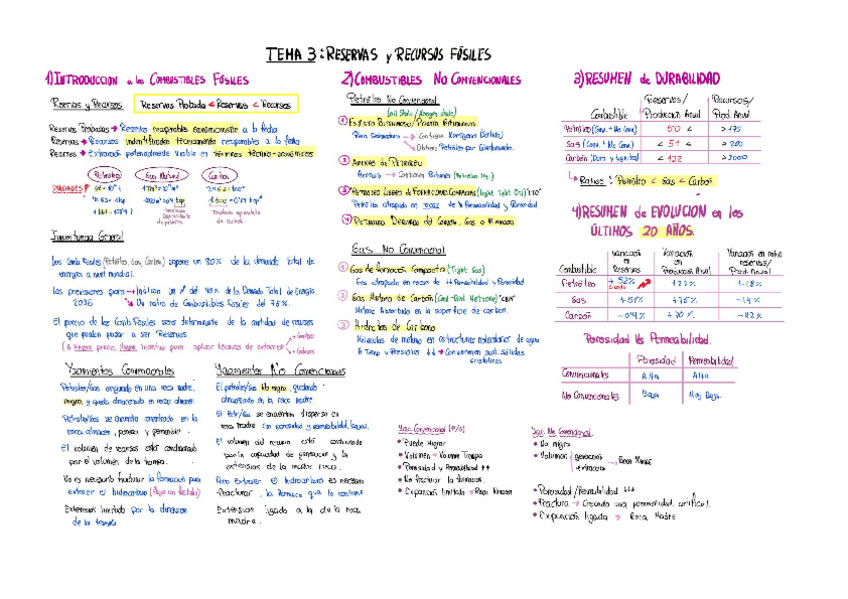 TEMA 3: RESERVAS y RECURSOS FÓSILES
1) INTRODUCCION a los COMBUSTIBLES FÓSILES
Reservas y Recursos
Reservas Probadas < Reservas < Recursos
Reservas Probadas → Reservas recuperables economicamente a la fecha
Reservas → Recursos indentificados tecnicamente recuperables a la fecha
Recursos → Extracción potencialmente viable en términos técnico-económicos
Petróleo
Gas Natural
Carbón
UNIDADES
Introduccion General
Los Comb. Fósiles (Petróleo, Gas, Carbón) supone un 80% de la demanda total de
energía a nivel mundial.
Las previsiones para → Indican un
de la Demanda Total de Energía
Un ratio de Combustibles Fosiles del 75%.
El precio de los Comb. Fósiles será determinante de la cantidad de recursos
que puedan pasar a ser Reservas.
precio,
incentivo para aplicar técnicas de extracción
Yacimientos Convencionales
Petroleo/Gas originado en una roca madre,
migra, y queda almacenado en roca almacén
Petroleo/Gas se encuentra concentrado en la
roca almacén, porosa y permeable.
El volumen de recursos está condicionado
por el volumen de la trampa.
No es necesario fracturar la formacion para
extraer el hidrocarburo
Extension limitada por la dimension
de la trampa
Yacimientos No Convencionales
El petróleo/gas No migra, quedando
almacenado en la roca madre.
El Petr/Gas se encuentra disperso en
roca madre con porosidad y permeabilidad bajas.
El volumen del recurso está condicionado
por la capacidad de generacion y la
extension de la madre roca.
Para extraer el hidrocarburo es necesario
fracturar la formacion que lo contiene
Extension ligada a la de la roca
madre.
2) COMBUSTIBLES No CONVENCIONALES
Petróleo No Convencional
(Oil Shale / Kerogen Shale)
① Esquisto Bituminoso / Pizarra Bituminosa
Roca Sedimentaria → Contiene Kerógeno (Sólido)
Obtiene Petróleo por Calentamiento.
② Arenas de Petróleo
Arenas → Contienen Bitumen
③ Petróleo Ligero de Formaciones Compactas (Light Tight Oil) "LTO"
Petróleo atrapado en rocas de ↓ Permeabilidad y Porosidad
④ Petróleo Derivado de Carbón, Gas o Biomasa
Gas No Convencional
① Gas de formación Compacta (Tight Gas)
Gas atrapado en rocas de ↓ Permeabilidad y Porosidad
② Gas Metano de Carbón (Coal-Bed Methane) "CBM"
Metano Absorbido en la superficie de carbón.
③ Hidratos de Carbono
Moléculas de metano en estructuras moleculares de agua
A Temp y Presiones ↓↓ → Conforman sust. sólidas
cristalinas
Yac. Convencional (P/G)
• Puede Migrar
• Volumen → Volumen Trampa
• Porosidad y Permeabilidad ↑↑
• No fracturar la formacion.
• Expansion limitada → Roca Almacen
3) RESUMEN de DURABILIDAD
Combustible
Reservas / Produccion Anual
Recursos / Prod. Anual
Petróleo (Conv. + No Conv.)
50 <
> 175
Gas (Conv. + No Conv.)
< 51 <
> 200
Carbón (Duro y Lignito)
< 122
> 3000
Ratios: Petróleo < Gas < Carbón
4) RESUMEN de EVOLUCION en los
ÚLTIMOS 20 AÑOS.
Combustible
Variacion en Reservas
Variacion en Produccion Anual
Variacion en ratio reservas / Prod. Anual
Petróleo
+ 52%
Gas
Carbón
Porosidad Vs Permeabilidad.
Porosidad
Permeabilidad
Convencionales
Alta
Alta
No Convencionales
Baja
Muy Baja.
Yac. No Convencional.
• No migra
• Volumen
generacion
extension
→ Roca Madre
• Porosidad / Permeabilidad ↓↓↓
• Fractura → Creando una permeabilidad artificial.
• Expansion ligada → Roca Madre